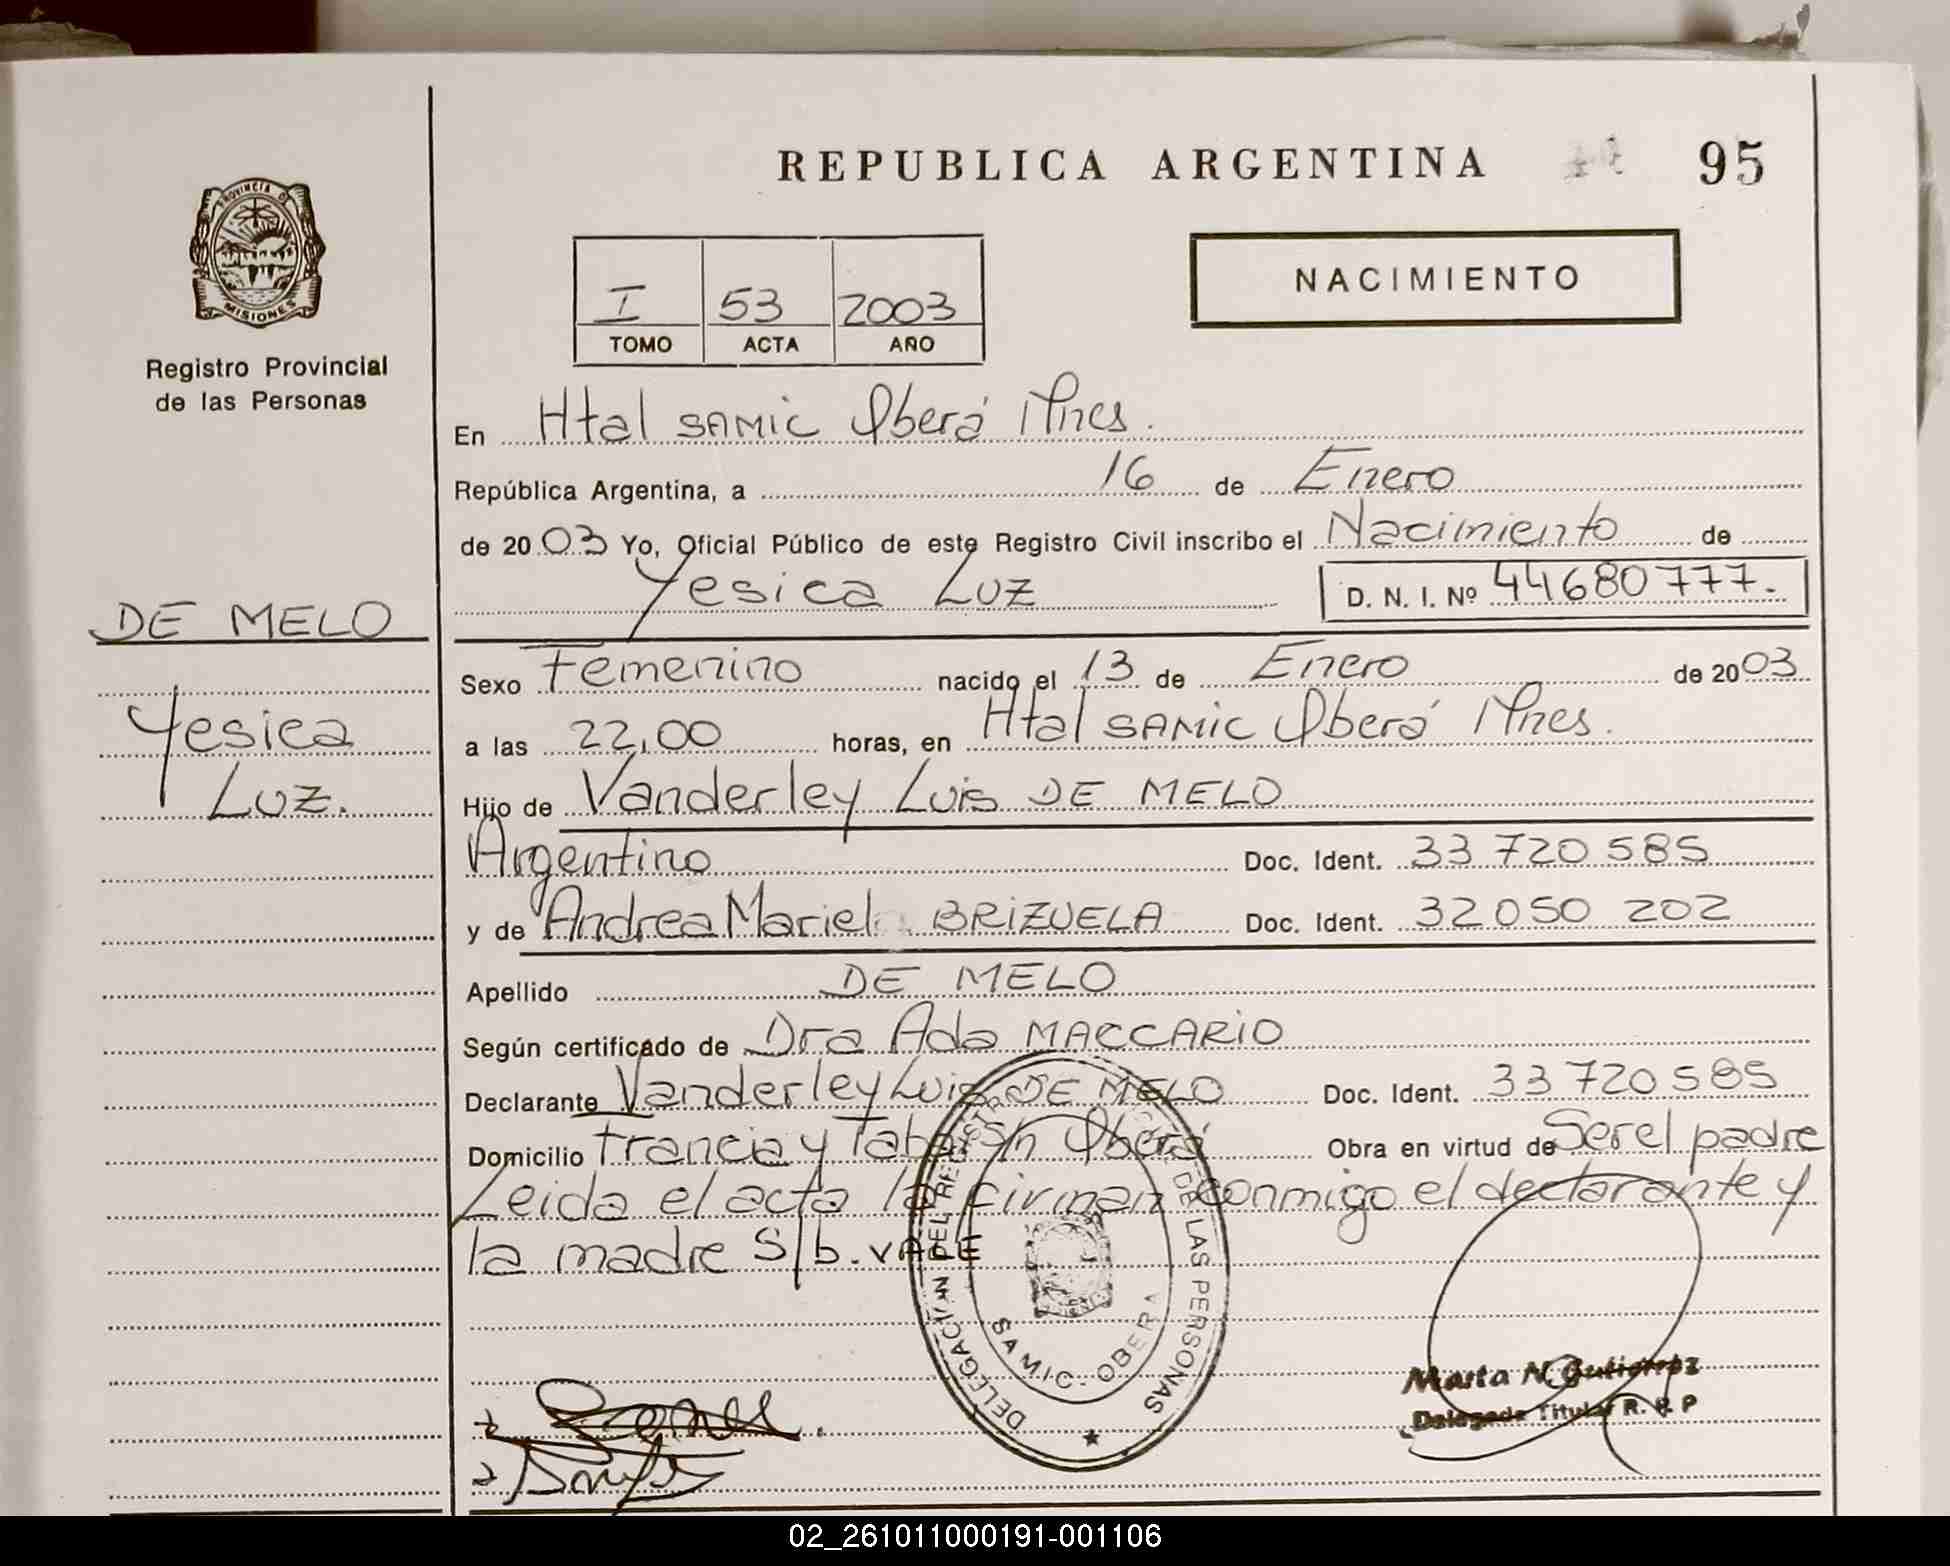 REPUBLICA ARGENTINA 95
PROVINCIA DE
MISIONES
Registro Provincial
de las Personas
I 53 2003
TOMO ACTA AÑO
NACIMIENTO
En Htal SAMIC Oberá Mnes.
República Argentina, a 16 de Enero
de 2003 Yo, Oficial Público de este Registro Civil inscribo el Nacimiento de
Yesica Luz D. N. I. Nº 44680777.
DE MELO
Yesica
Luz.
Sexo Femenino nacido el 13 de Enero de 2003
a las 22,00 horas, en Htal SAMIC Oberá Mnes.
Hijo de Vanderley Luis DE MELO
Argentino Doc. Ident. 33 720 585
y de Andrea Mariel BRIZUELA Doc. Ident. 32 050 202
Apellido DE MELO
Según certificado de Dra Ada MACCARIO
Declarante Vanderley Luis DE MELO Doc. Ident. 33 720 585
Domicilio Francia y Tabay S/n Oberá Obra en virtud de Ser el padre
Leida el acta la firman conmigo el declarante y
la madre S/b. VALE
DELEGACION DEL REGISTRO DE LAS PERSONAS
SAMIC - OBERA
Marta N. Gutierrez
Delegada Titular R. P. P
02_261011000191-001106